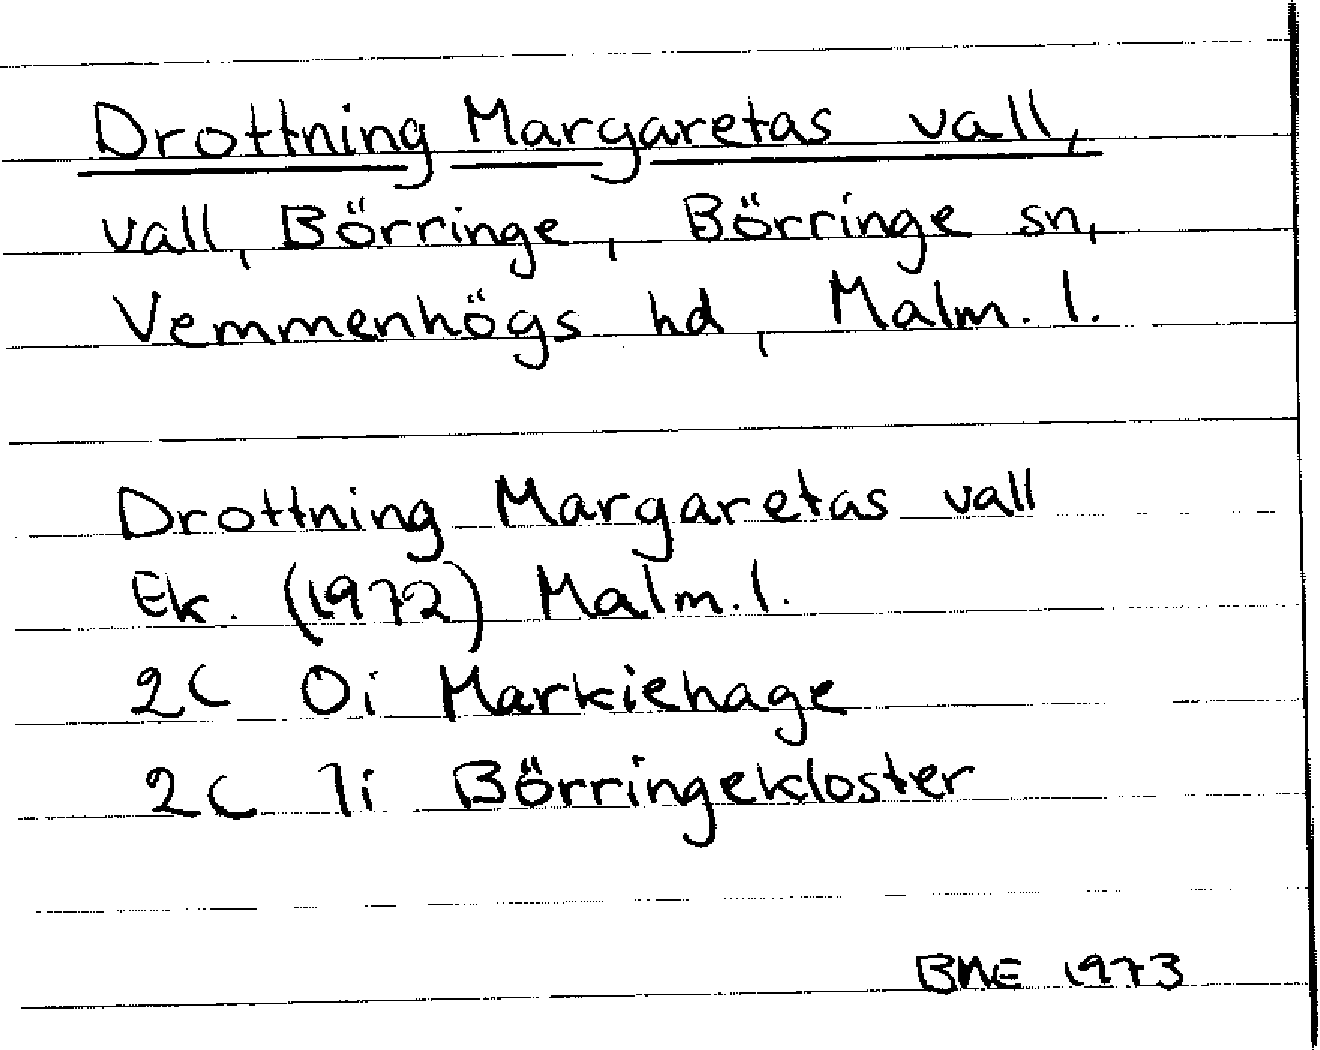 Drottning Margaretas vall,
vall, Börringe, Börringe sn,
Vemmenhögs hd, Malm. l.
Drottning Margaretas vall
Ek. (1972) Malm. l.
2C 0i Markiehage
2C 1i Börringekloster
BME 1973